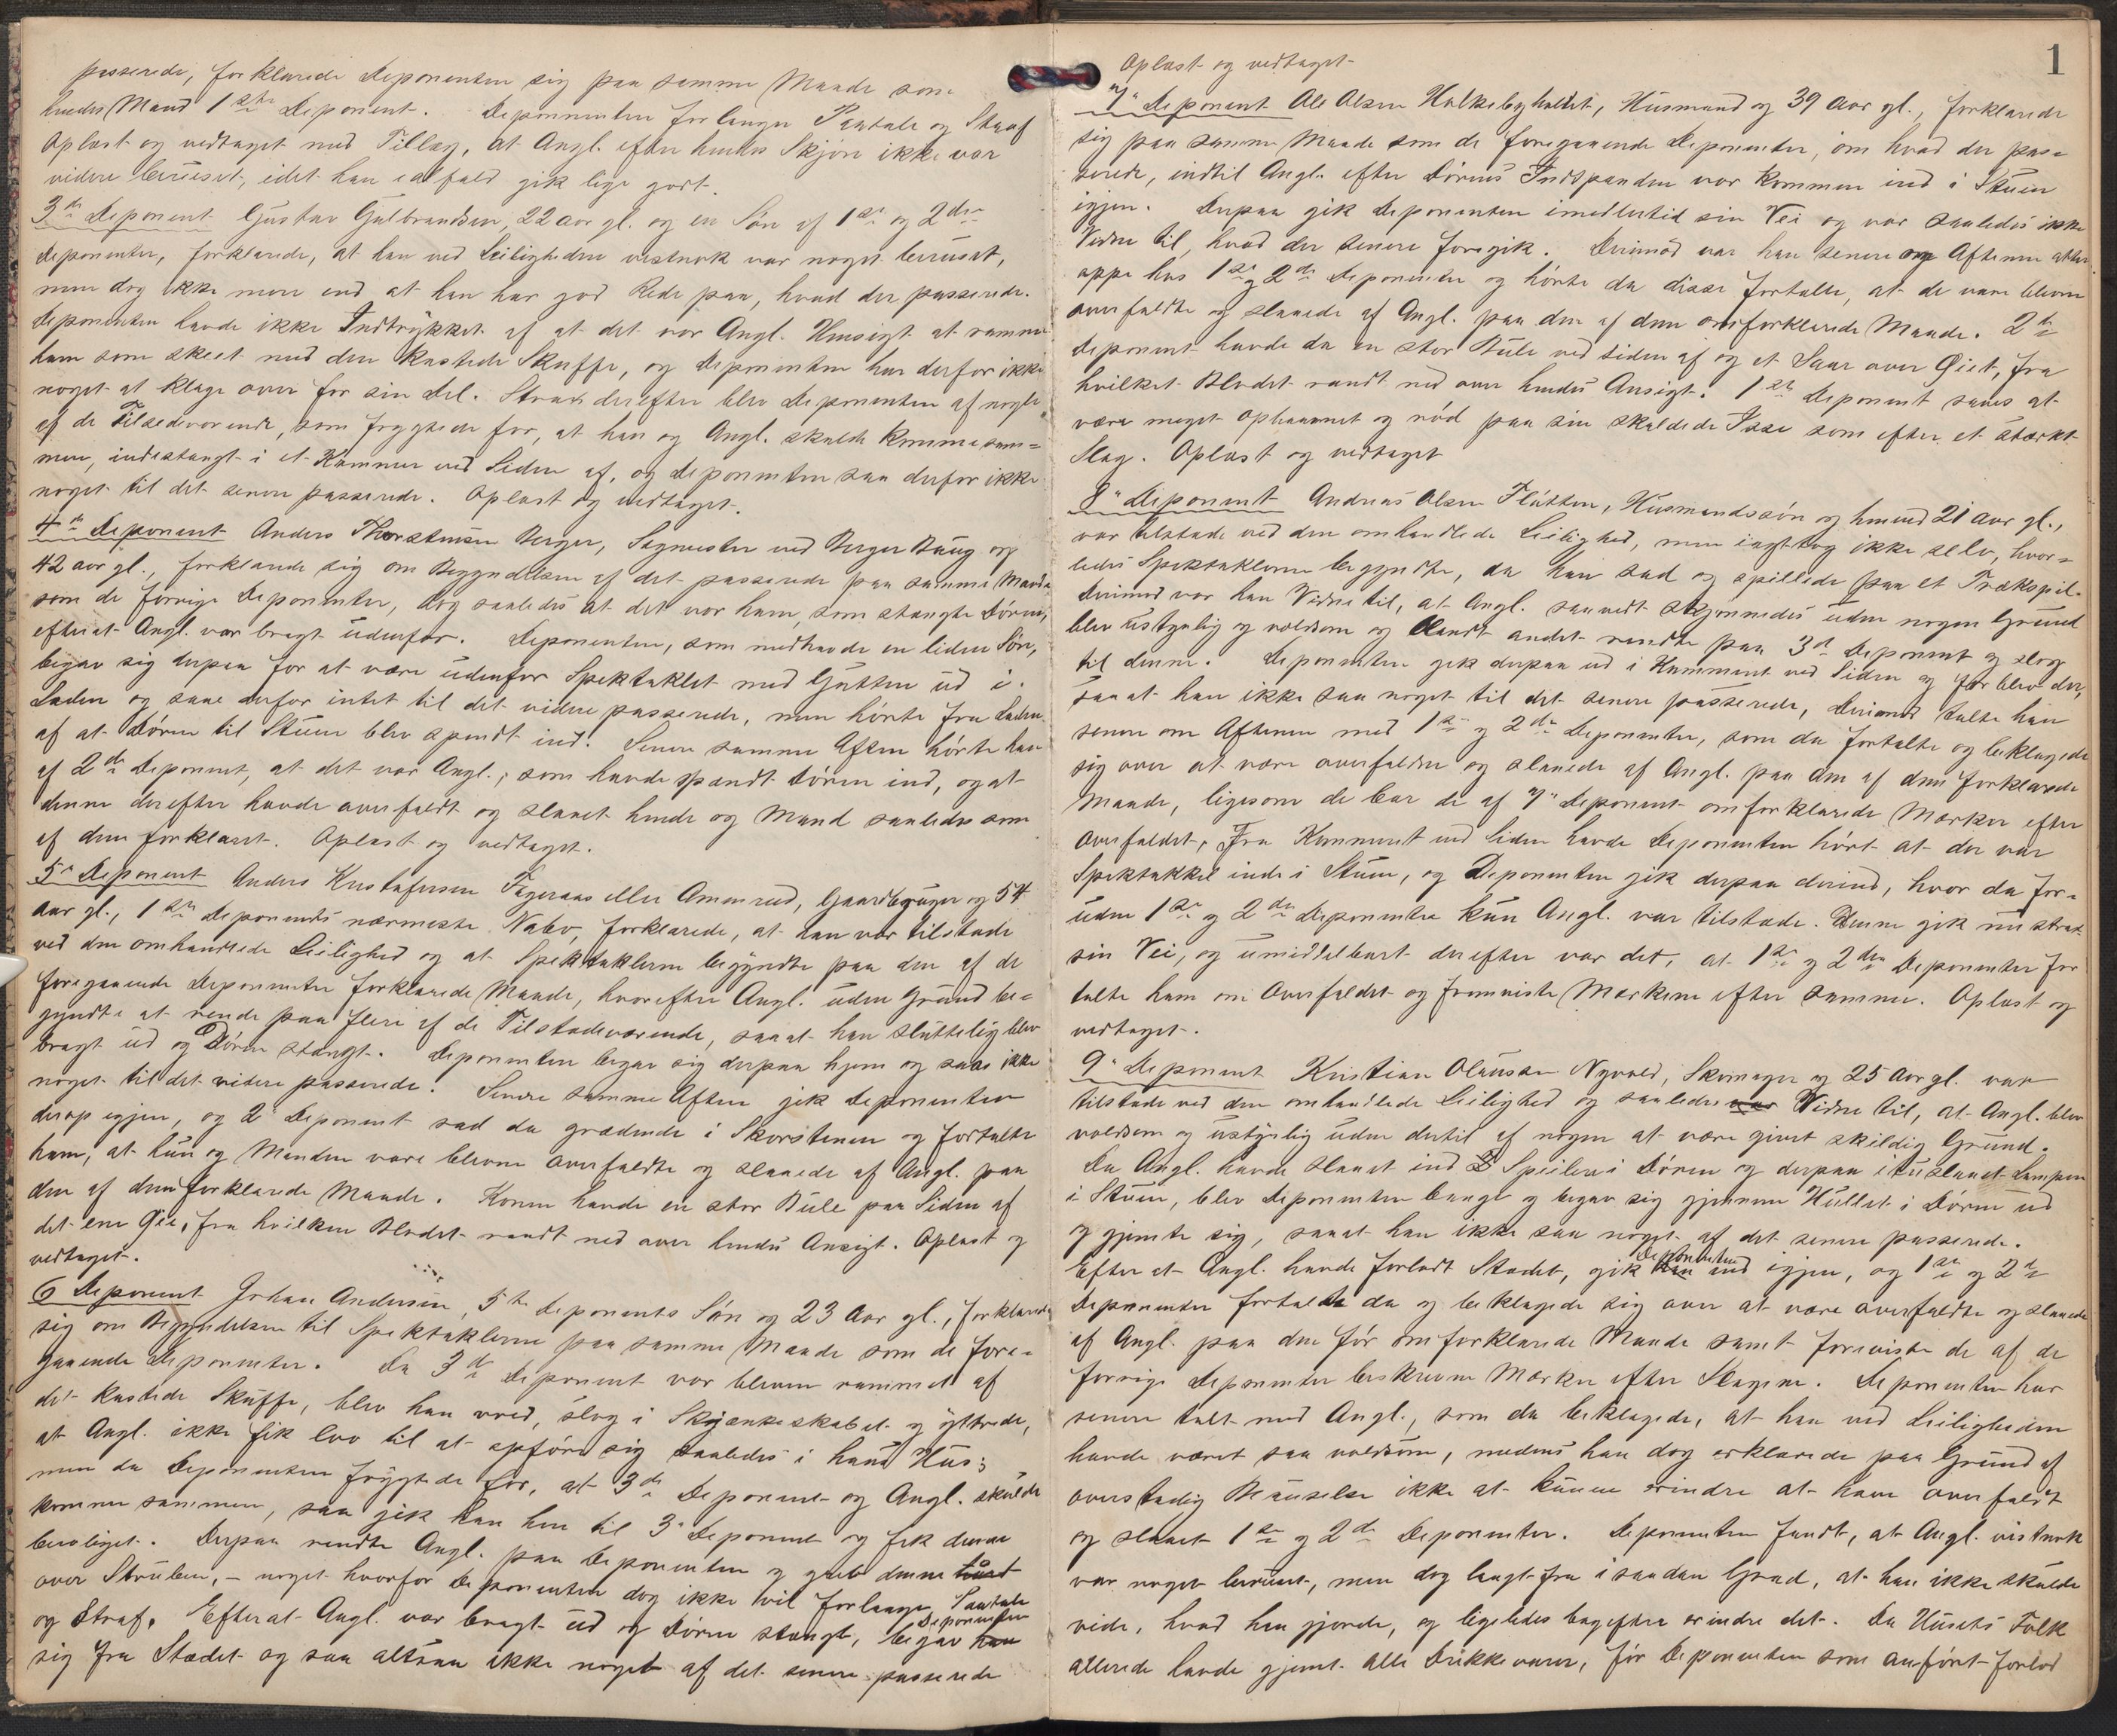 passerede, forklarede Deponenten sig paa samme Maade som
hendes Mand 1ste Deponent. Deponenten forlanger Paatale og Straf
Oplæst og vedtaget med Tillæg, at Angl. efter hendes Skjøn ikke var
videre beruset, idet han ialfald gik lige godt.
3die Deponent Gustav Gulbrandsen, 22 aar gl. og en Søn af 1ste og 2den
Deponenter, forklarede, at han ved Leiligheden vistnok var noget beruset,
men dog ikke mere end at han har god Rede paa, hvad der passerede.
Deponenten havde ikke Indtrykket af at det var Angl. Hensigt at ramme
ham som skeet med den kastede Skuffe, og Deponenten har derfor ikke
noget at klage over for sin Del. Strax derefter blev Deponenten af nogle
af de Tilstedeværende, som frygtede for, at han og Angl. skulde komme sam=
men, indestængt i et Kammer ved Siden af, og Deponenten saa derfor ikke
noget til det senere passerede. Oplæst og vedtaget.
4de Deponent Anders Thorstensen Berger, Sagmester ved Berger Brug og
42 aar gl., forklarede sig om Begyndelsen af det passerede paa samme Maade
som de forrige Deponenter, dog saaledes at det var ham, som stængte Døren,
efterat Angl. var bragt udenfor. Deponenten, som medhavde en liden Søn,
begav sig derpaa for at være udenfor Spektaklet med Gutten ud i
Laden og saae derfor intet til det videre passerede, men hørte fra Laden
af at Døren til Stuen blev spændt ind. Senere samme Aften hørte han
af 2den Deponent, at det var Angl., som havde spændt Døren ind, og at
denne derefter havde overfaldt og slaaet hende og Mand saaledes som
af dem forklaret. Oplæst og vedtaget.
5te Deponent Anders Kristofersen Fageraas eller Amerud, Gaardbruger og 54
aar gl., 1ste Deponents nærmeste Nabo, forklarede, at han var tilstede
ved den omhandlede Leilighed og at Spektaklerne begyndte paa den af de
foregaaende Deponenter forklarede Maade, hvorefter Angl. uden Grund be=
gyndte at rende paa flere af de Tilstedeværende, saaat han sluttelig blev
bragt ud og Døren stængt. Deponenten begav sig derpaa hjem og saae ikke
noget til det videre passerede. Senere samme Aften gik Deponenten
derop igjen, og 2den Deponent sad da grædende i Skorstenen og fortalte
ham, at hun og Manden vare blevne overfaldte og slaaede af Angl. paa
den af dem forklarede Maade. Konen havde en stor Bule paa Siden af
det ene Øie, fra hvilken Blodet randt ned over hendes Ansigt. Oplæst og
vedtaget.
6 Deponent Johan Andersen, 5te Deponents Søn og 23 Aar gl., forklarede
sig om Begyndelsen til Spektaklerne paa samme Maade som de fore=
gaaende Deponenter. Da 3die Deponent var bleven rammet af
det kastede Skuffe, blev han vred, slog i Skjænkeskabet og yttrede,
at Angl. ikke fik lov til at opføre sig saaledes i hans Hus;
men da Deponenten frygtede for, at 3die Deponent og Angl. skulde
komme sammen, saa gik han hen til 3die Deponent og fik denne
beroliget. Derpaa rendte Angl. paa Deponenten og greb denne haardt
over Struben, – noget hvorfor Deponenten dog ikke vil forlange Paatale
og Straf. Efterat Angl. var bragt ud og Døren stængt, begav han Deponenten
sig fra Stedet og saa altsaa ikke noget af det senere passerede
1
Oplæst og vedtaget
7de Deponent Ole Olsen Halkebyhaldet, Husmand og 39 Aar gl., forklarede
sig paa samme Maade som de foregaaende Deponenter, om hvad der pas=
serede, indtil Angl. efter Dørens Indspænden var kommen ind i Stuen
igjen. Derpaa gik Deponenten imidlertid sin Vei og var saaledes ikke
Vidne til, hvad der senere foregik. Derimod var han senere om Aftenen atter
oppe hos 1ste og 2den Deponenter og hørte da disse fortælle, at de vare blevne
overfaldte og slaaede af Angl. paa den af dem omforklarede Maade. 2den
Deponent havde da en stor Bule ved siden af og et Saar over Øiet, fra
hvilket Blodet randt ned over hendes Ansigt. 1ste Deponent saaes at
være meget ophovnet og rød paa sin skaldede Isse som efter et stærkt
Slag. Oplæst og vedtaget
8de Deponent Andreas Olsen Fløtten, Husmandssøn og henved 21 aar gl.,
var tilstede ved den omhandlede Leilighed, men iagttog ikke selv, hvor=
ledes Spektaklerne begyndte, da han sad og spillede paa et Trækspil.
Derimod var han Vidne til, at Angl. saavidt skjønnedes uden nogen Grund
blev ustyrlig og voldsom og blandt andet rendte paa 3die Deponent og slog
til denne. Deponenten gik derpaa ud i Kammeret ved Siden og forblev der,
saaat han ikke saa noget til det senere passerede, Derimod talte han
senere om Aftenen med 1ste og 2den Deponenter, som da fortalte og beklagede
sig over at være overfaldne og slaaede af Angl. paa den af dem forklarede
Maade, ligesom de bar de af 7de Deponent omforklarede Mærker efter
Overfaldet. Fra Kammeret ved Siden havde Deponenten hørt at der var
Spektakkel inde i Stuen, og Deponenten gik derpaa derind, hvor da for=
uden 1ste og 2den Deponenter kun Angl. var tilstede. Denne gik nu strax
sin Vei, og umiddelbart derefter var det, at 1ste og 2den Deponenter for
talte ham om Overfaldet og fremviste Mærkerne efter samme. Oplæst og
vedtaget.
9de Deponent Kristian Olaussen Nyvold, Skomager og 25 Aar gl. var
tilstede ved den omhandlede Leilighed og saaledes var Vidne til, at Angl. blev
voldsom og ustyrlig uden dertil af nogen at være givet skjellig Grund.
Da Angl. havde slaaet ind 2 Speiler i Døren og derpaa ituslaaet Lampen
i Stuen, blev Deponenten bange og begav sig gjennem Hullet i Døren ud
og gjemte sig, saaat han ikke saa noget af det senere passerede.
Efter at Angl. havde forladt Stedet, gik han Deponenten ind igjen, og 1ste og 2den
Deponenter fortalte da og beklagede sig over at være overfaldte og slaaede
af Angl. paa den før omforklarede Maade samt foreviste de af de
forrige Deponenter beskrevne Mærker efter Slagene. Deponenten har
senere talt med Angl., som da beklagede, at han ved Leiligheden
havde været saa voldsom, medens han dog erklærede paa Grund af
overstadig Beruselse ikke at kunne erindre at have overfaldt
og slaaet 1ste og 2den Deponenter. Deponenten fandt, at Angl. vistnok
var noget beruset, men dog langt fra i saadan Grad, at han ikke skulde
vide, hvad han gjorde, og ligeledes bagefter erindre det. Da Husets Folk
allerede havde gjemt alle Drikkevarer, før Deponenten som anført forlod